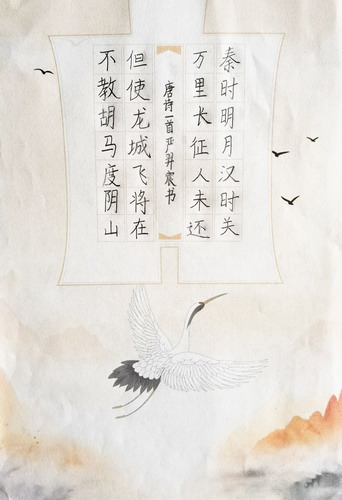 秦时明月汉时关
万里长征人未还
唐诗一首严羿宸书
但使龙城飞将在
不教胡马度阴山